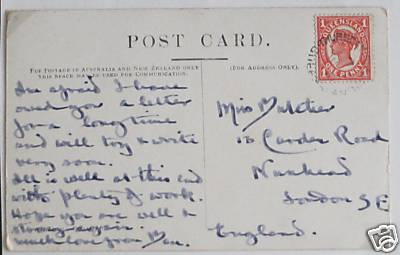 POST CARD.
FOR POSTAGE IN AUSTRALIA AND NEW ZEALAND ONLY
THIS SPACE MAY BE USED FOR COMMUNICATION.
(FOR ADDRESS ONLY).
QUEENSLAND
1 1
ONE PENNY
I'm afraid I have
owed you a letter
for a long time
and will try & write
very soon.
All is well at this end
with plenty of work.
Hope you are well &
strong again.
Much love from
Miss
15 Road
Nunhead
London S.E.
England.
ebY